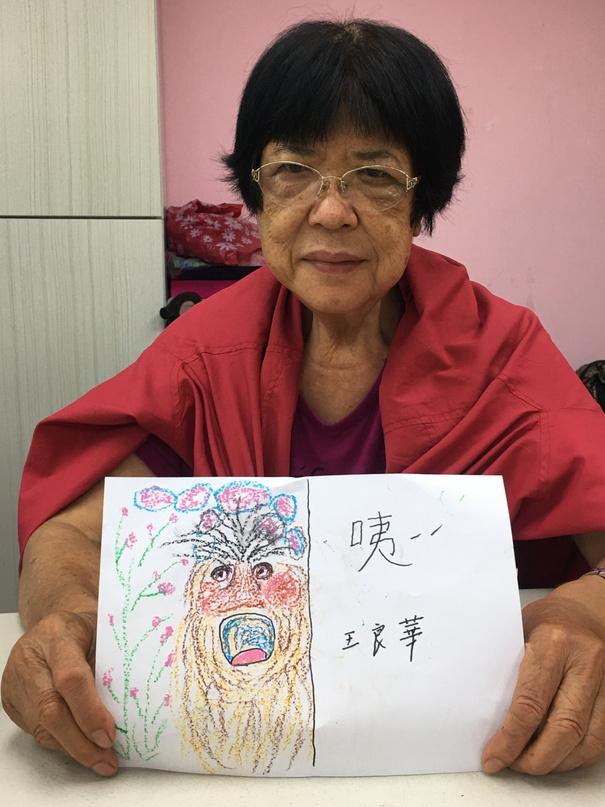 咦--
王良華